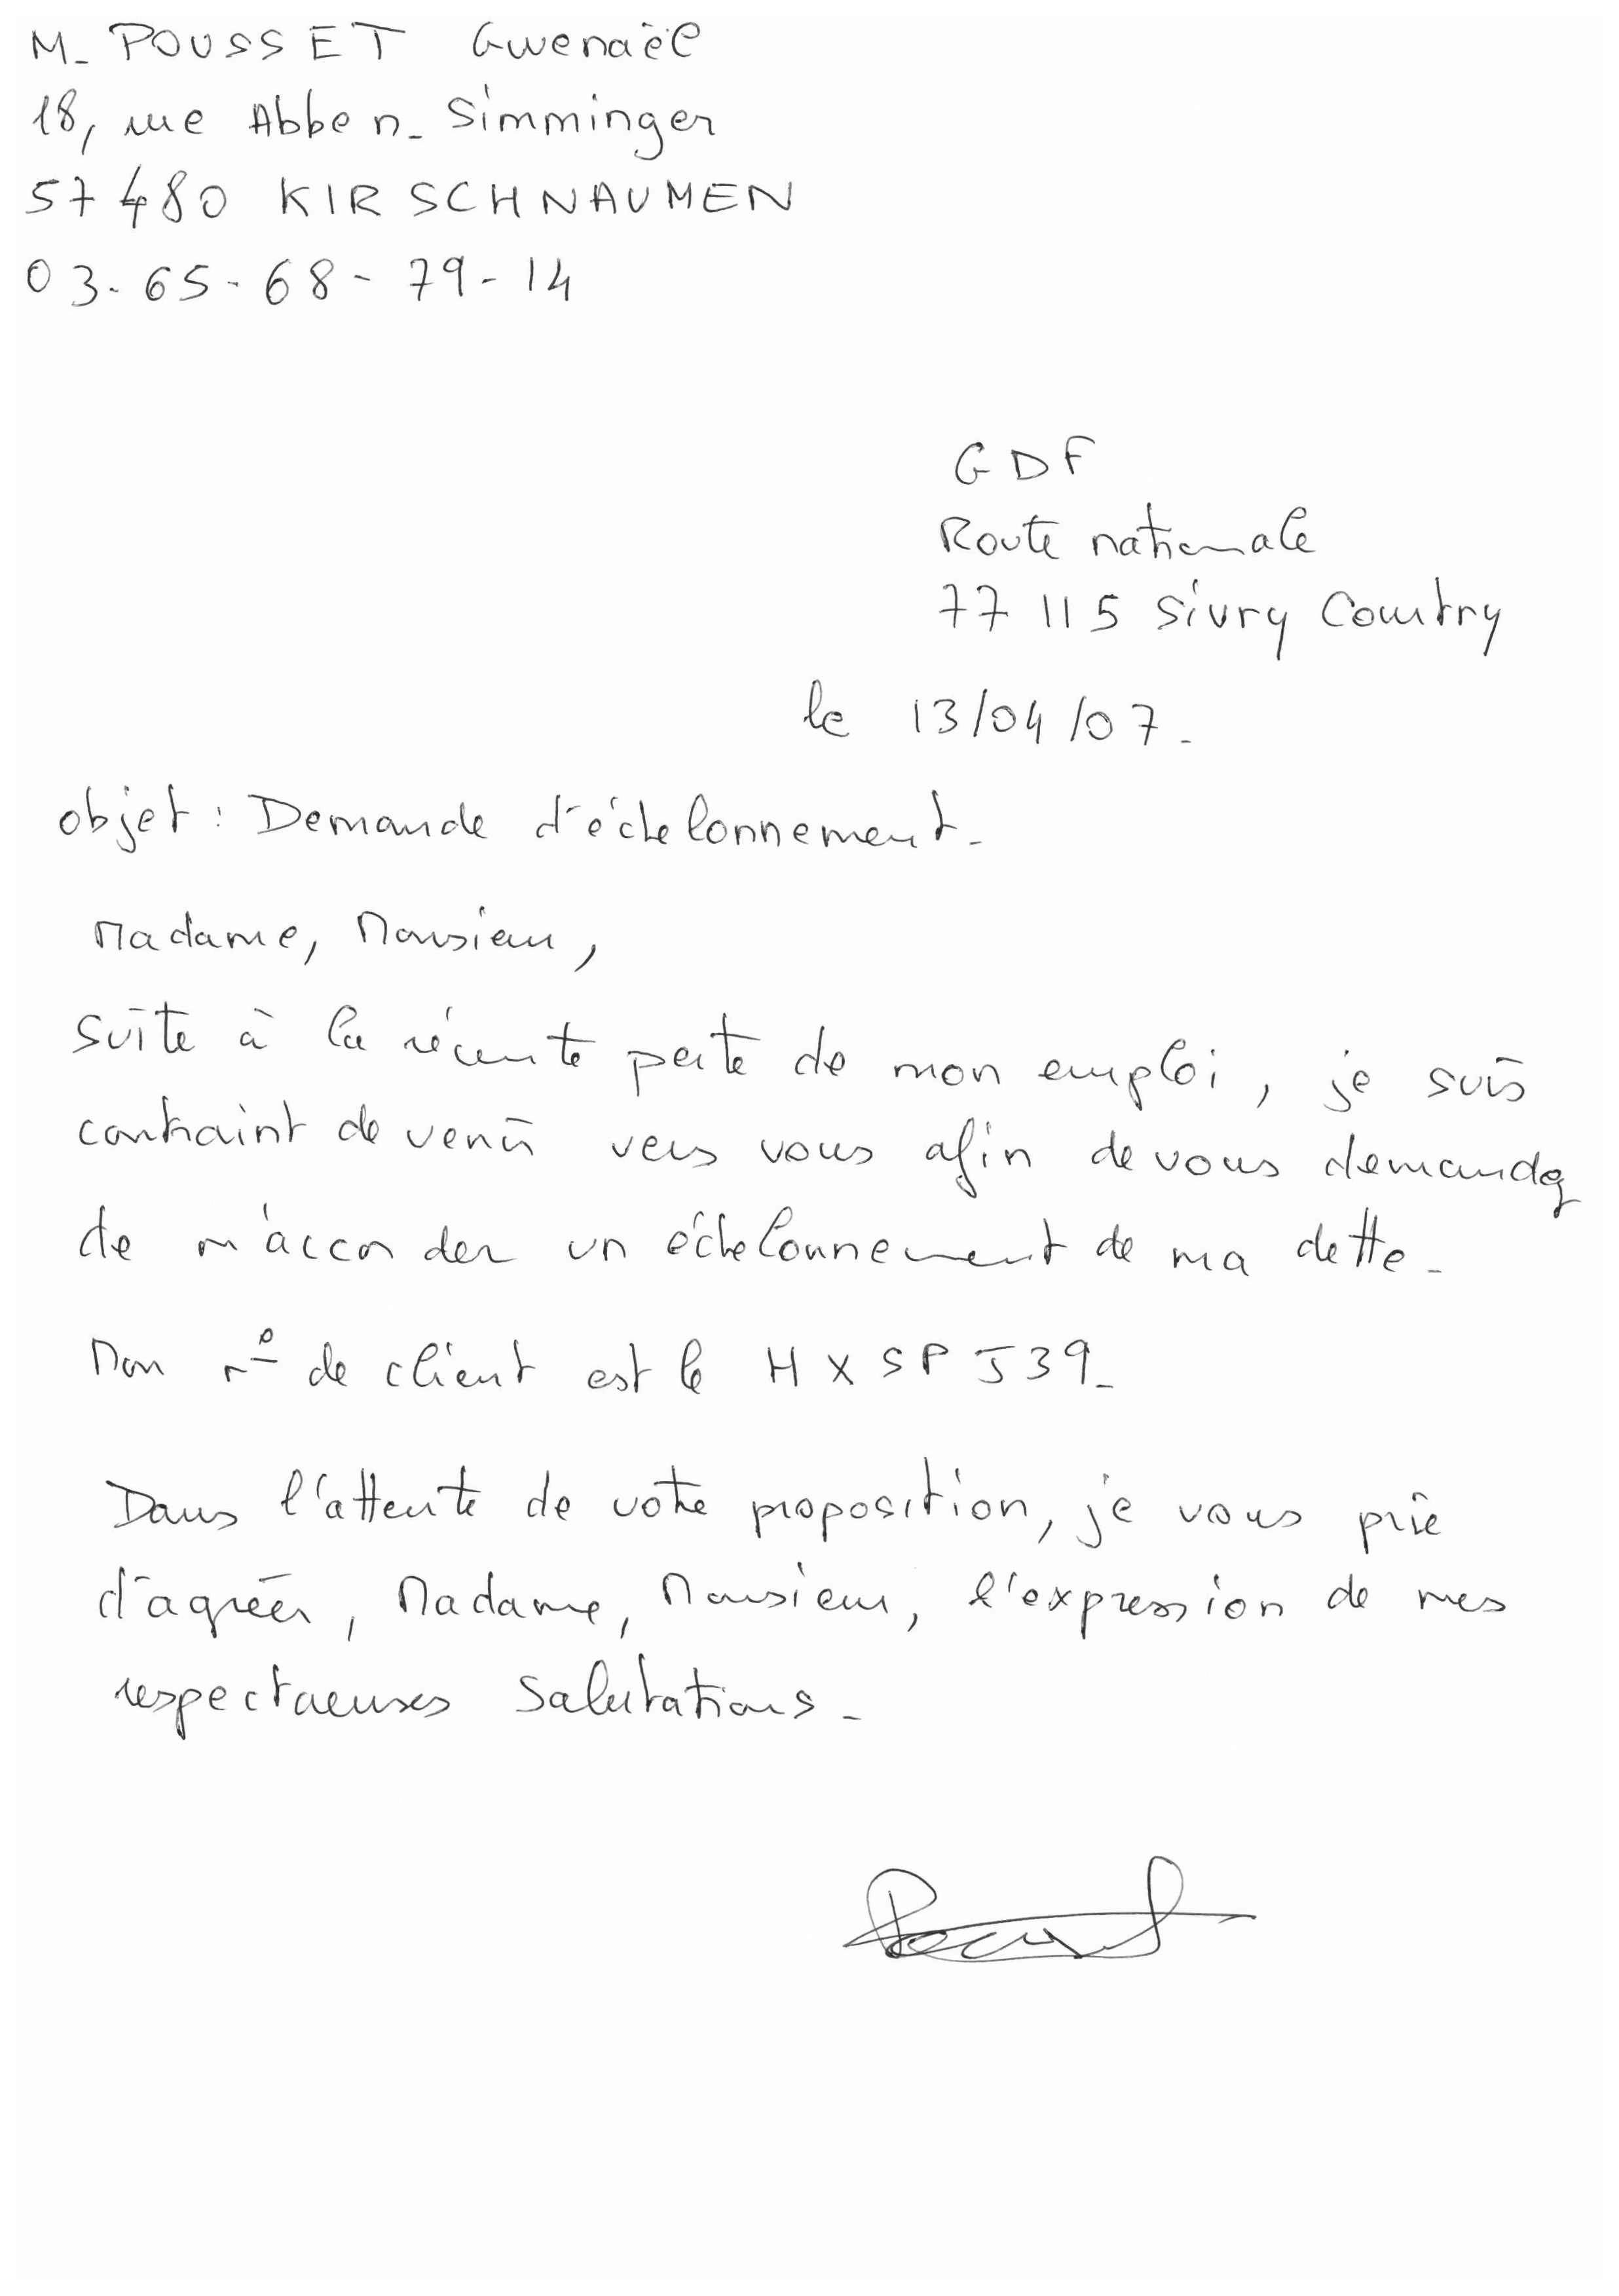 M. POUSSET Gwenaël
18, rue Abbe n. Simminger
57480 KIRSCHNAUMEN
03-65-68-79-14
GDF
Route nationale
77115 Sivry Courtry
le 13/04/07.
objet : Demande d'échelonnement.
Madame, Monsieur,
suite à la récente perte de mon emploi, je suis
contraint de venir vers vous afin de vous demander
de m'accorder un échelonnement de ma dette.
Mon n° de client est le HXSPJ39.
Dans l'attente de votre proposition, je vous prie
d'agréer, Madame, Monsieur, l'expression de mes
respectueuses salutations.